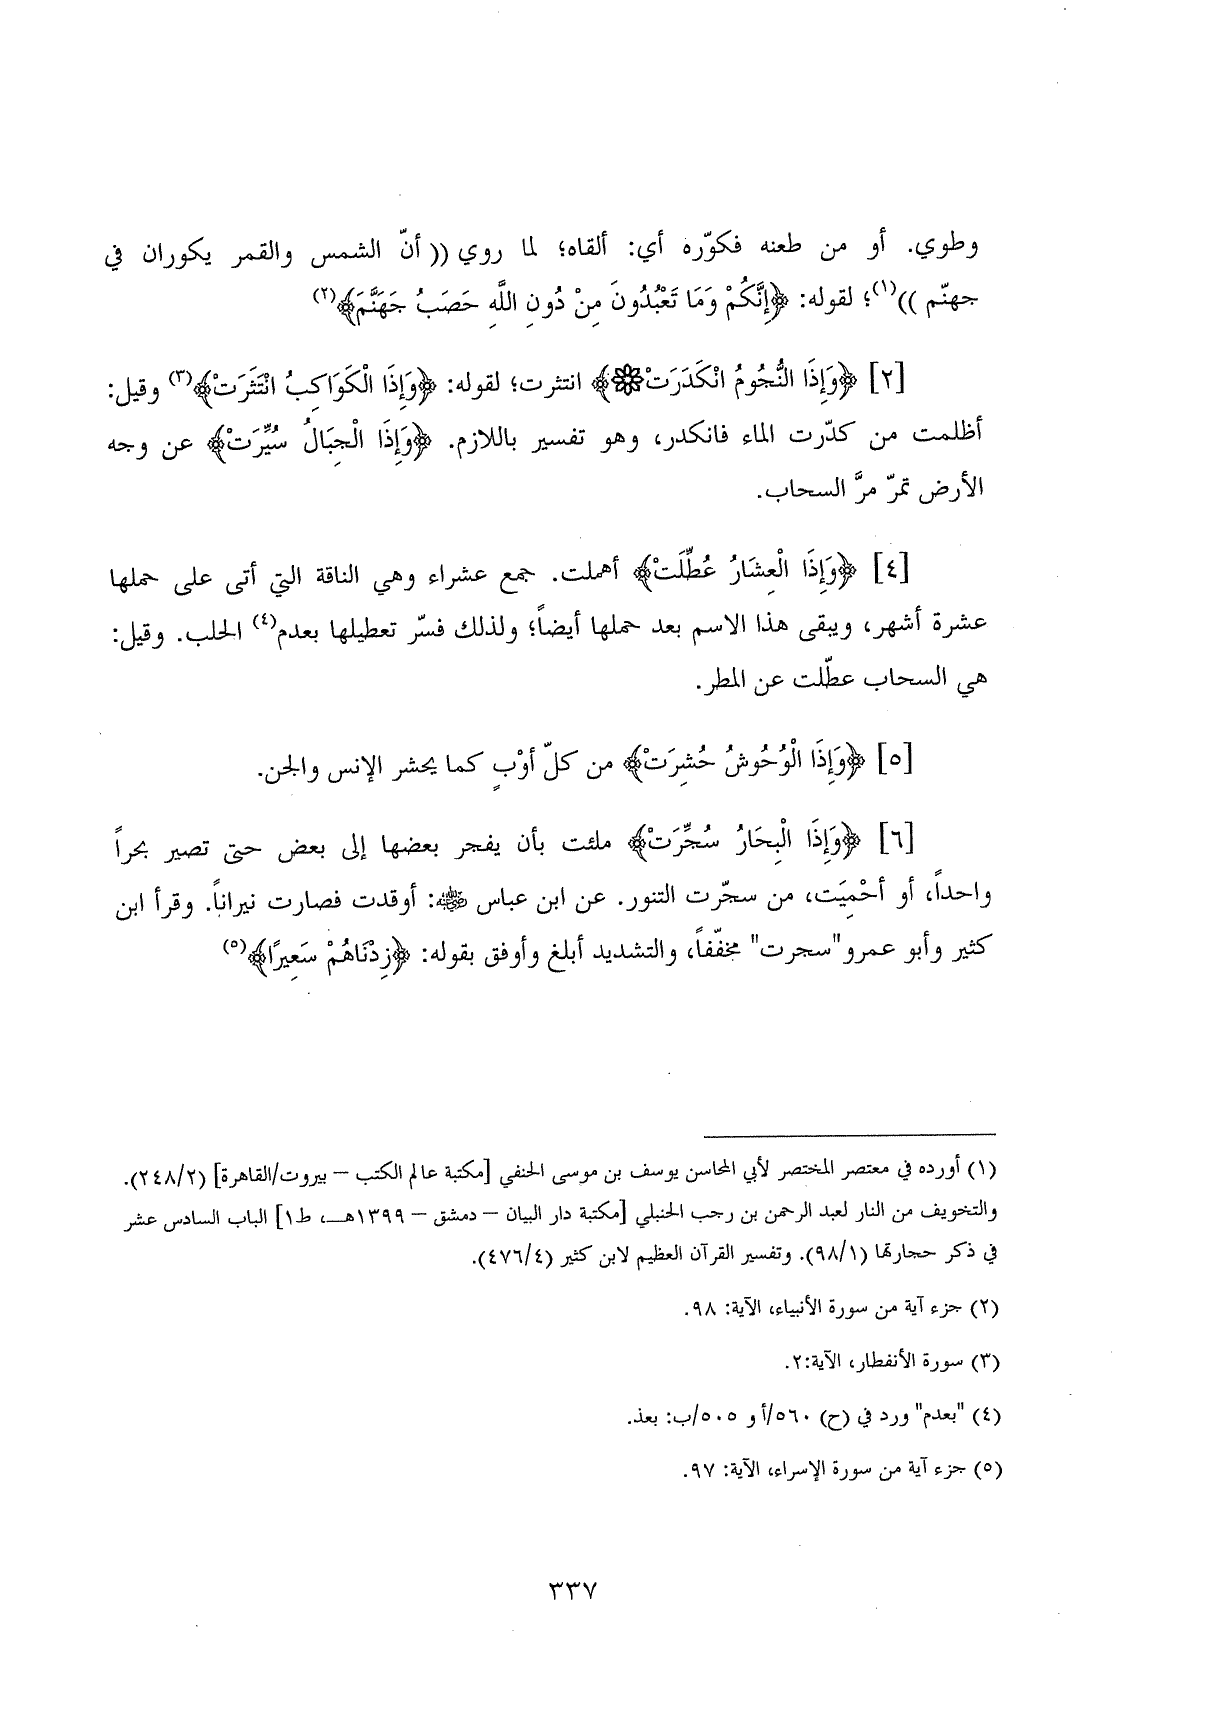 وطوي. أو من طعنه فكوّره أي: ألقاه؛ لما روي (( أنّ الشمس والقمر يكوران في
جهنّم ))(١)؛ لقوله: ﴿إِنَّكُمْ وَمَا تَعْبُدُونَ مِنْ دُونِ اللَّهِ حَصَبُ جَهَنَّمَ﴾(٢)
[٢] ﴿وَإِذَا النُّجُومُ انْكَدَرَتْ﴾ انتثرت؛ لقوله: ﴿وَإِذَا الْكَوَاكِبُ انْتَثَرَتْ﴾(٣) وقيل:
أظلمت من كدّرت الماء فانكدر، وهو تفسير باللازم. ﴿وَإِذَا الْجِبَالُ سُيِّرَتْ﴾ عن وجه
الأرض تمرّ مرَّ السحاب.
[٤] ﴿وَإِذَا الْعِشَارُ عُطِّلَتْ﴾ أهملت. جمع عشراء وهي الناقة التي أتى على حملها
عشرة أشهر، ويبقى هذا الاسم بعد حملها أيضاً؛ ولذلك فسّر تعطيلها بعدم(٤) الحلب. وقيل:
هي السحاب عطّلت عن المطر.
[٥] ﴿وَإِذَا الْوُحُوشُ حُشِرَتْ﴾ من كلّ أوْبٍ كما يحشر الإنس والجن.
[٦] ﴿وَإِذَا الْبِحَارُ سُجِّرَتْ﴾ ملئت بأن يفجر بعضها إلى بعض حتى تصير بحراً
واحداً، أو أحْمِيَت، من سجّرت التنور. عن ابن عباس : أوقدت فصارت نيراناً. وقرأ ابن
كثير وأبو عمرو"سجرت" مخفّفاً، والتشديد أبلغ وأوفق بقوله: ﴿زِدْنَاهُمْ سَعِيرًا﴾(٥)
(١) أورده في معتصر المختصر لأبي المحاسن يوسف بن موسى الحنفي [مكتبة عالم الكتب – بيروت/القاهرة] (٢٤٨/٢).
والتخويف من النار لعبد الرحمن بن رجب الحنبلي [مكتبة دار البيان – دمشق – ١٣٩٩هـ، ط١] الباب السادس عشر
في ذكر حجارتها (٩٨/١). وتفسير القرآن العظيم لابن كثير (٤٧٦/٤).
(٢) جزء آية من سورة الأنبياء، الآية: ٩٨.
(٣) سورة الأنفطار، الآية:٢.
(٤) "بعدم" ورد في (ح) ٥٦٠/أ و ٥٠٥/ب: بعذ.
(٥) جزء آية من سورة الإسراء، الآية: ٩٧.
٣٣٧